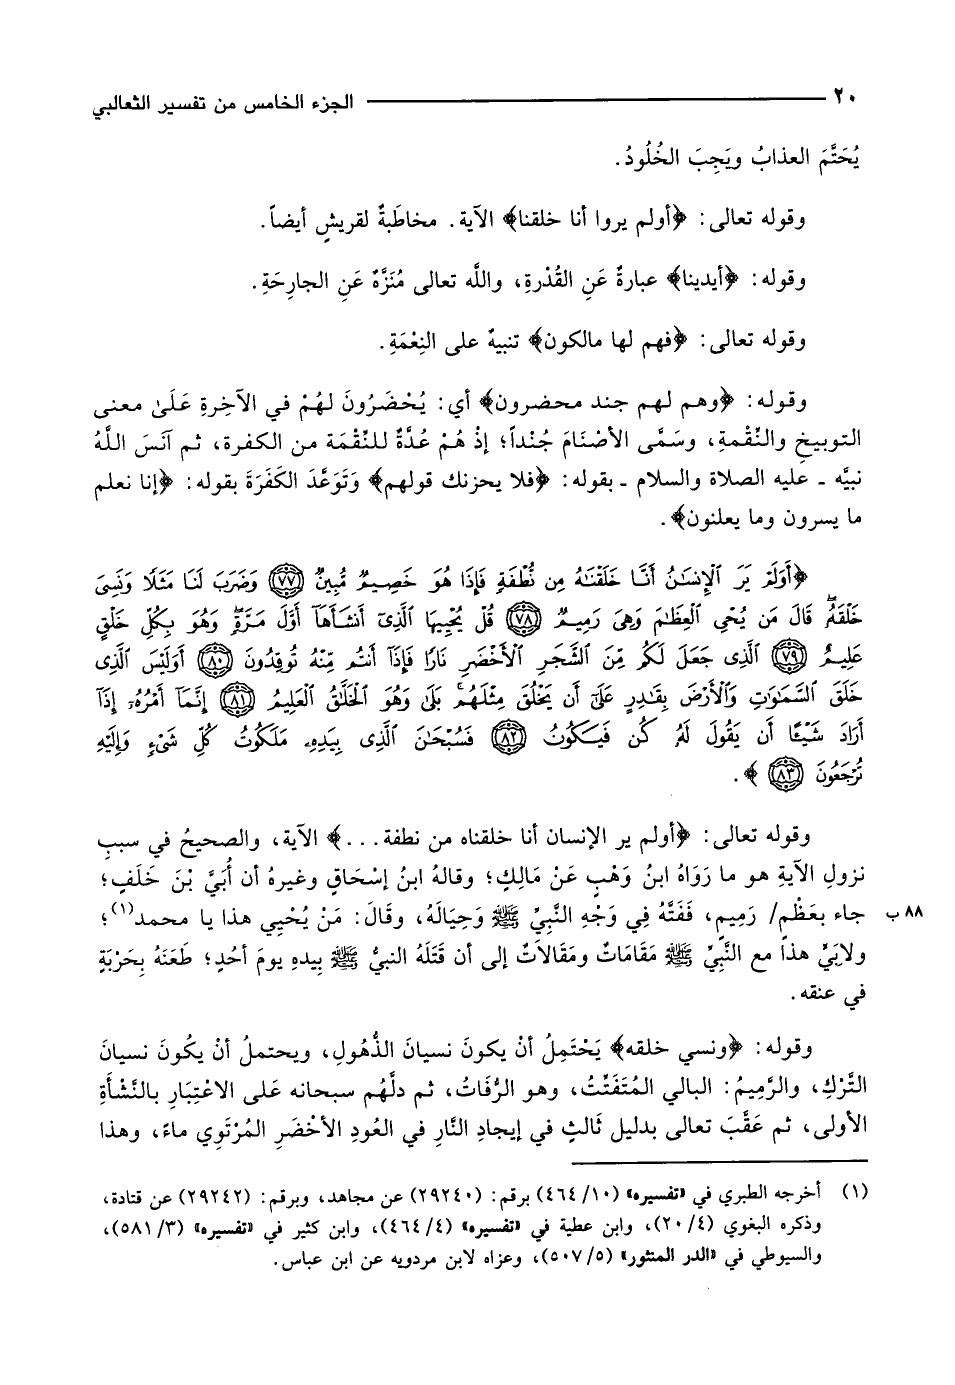 ٢٠ ــــــــــ الجزء الخامس من تفسير الثعالبي
يُحَتَّمَ العذابُ ويَجِبَ الخُلُودُ.
وقوله تعالى: ﴿أولم يروا أنا خلقنا﴾ الآية. مخاطَبةٌ لقريشٍ أيضاً.
وقوله: ﴿أيدينا﴾ عبارةٌ عَنِ القُدْرةِ، واللَّه تعالى مُنَزَّهٌ عَنِ الجارِحَةِ.
وقوله تعالى: ﴿فهم لها مالكون﴾ تنبيهٌ على النِعْمَةِ.
وقوله: ﴿وهم لهم جند محضرون﴾ أي: يُحْضَرُونَ لهُمْ في الآخِرةِ عَلَىٰ معنى
التوبيخِ والنِّقْمةِ، وسَمَّى الأصْنَامَ جُنْداً؛ إذْ هُمْ عُدَّةٌ للنِّقْمَة من الكفرة، ثم آنَسَ اللَّهُ
نبيَّه - عليه الصلاة والسلام - بقوله: ﴿فلا يحزنك قولهم﴾ وَتَوَعَّدَ الكَفَرَةَ بقوله: ﴿إنا نعلم
ما يسرون وما يعلنون﴾.
﴿أَوَلَمْ يَرَ ٱلْإِنسَٰنُ أَنَّا خَلَقْنَٰهُ مِن نُّطْفَةٍ فَإِذَا هُوَ خَصِيمٌ مُّبِينٌ ٧٧ وَضَرَبَ لَنَا مَثَلًا وَنَسِىَ
خَلْقَهُۥ قَالَ مَن يُحْىِ ٱلْعِظَٰمَ وَهِىَ رَمِيمٌ ٧٨ قُلْ يُحْيِيهَا ٱلَّذِىٓ أَنشَأَهَآ أَوَّلَ مَرَّةٍ وَهُوَ بِكُلِّ خَلْقٍ
عَلِيمٌ ٧٩ ٱلَّذِى جَعَلَ لَكُم مِّنَ ٱلشَّجَرِ ٱلْأَخْضَرِ نَارًا فَإِذَآ أَنتُم مِّنْهُ تُوقِدُونَ ٨٠ أَوَلَيْسَ ٱلَّذِى
خَلَقَ ٱلسَّمَٰوَٰتِ وَٱلْأَرْضَ بِقَٰدِرٍ عَلَىٰٓ أَن يَخْلُقَ مِثْلَهُم بَلَىٰ وَهُوَ ٱلْخَلَّٰقُ ٱلْعَلِيمُ ٨١ إِنَّمَآ أَمْرُهُۥٓ إِذَآ
أَرَادَ شَيْـًٔا أَن يَقُولَ لَهُۥ كُن فَيَكُونُ ٨٢ فَسُبْحَٰنَ ٱلَّذِى بِيَدِهِۦ مَلَكُوتُ كُلِّ شَىْءٍ وَإِلَيْهِ
تُرْجَعُونَ ٨٣﴾.
وقوله تعالى: ﴿أولم ير الإنسان أنا خلقناه من نطفة...﴾ الآية، والصحيحُ في سببِ
نزولِ الآيةِ هو ما رَوَاهُ ابنُ وَهْبٍ عَنْ مَالِكٍ؛ وقالهُ ابنُ إسْحَاقٍ وغيرهُ أن أُبَيَّ بْنَ خَلَفٍ؛
جاء بعَظْمٍ/ رَمِيمٍ، فَفَتَّهُ فِي وَجْهِ النَّبِيِّ ﷺ وَحِيَالَهُ، وقَالَ: مَنْ يُحْيِي هذا يا محمد(١)؛ ٨٨ ب
ولابَيٍّ هذَا مع النَّبِيِّ ﷺ مَقَامَاتٌ ومَقَالاَتٌ إلى أن قَتَلَهُ النبيُّ ﷺ بِيدهِ يومَ أحُدٍ؛ طَعَنَهُ بِحَرْبَةٍ
في عنقه.
وقوله: ﴿ونسي خلقه﴾ يَحْتَمِلُ أنْ يكونَ نسيانَ الذُّهُولِ، ويحتملُ أنْ يكُونَ نسيانَ
التَّركِ، والرَّمِيمُ: البالي المُتَفَتِّتُ، وهو الرُّفَاتُ، ثم دلَّهُم سبحانه عَلى الاعْتِبَارِ بالنَّشْأَةِ
الأولى، ثم عَقَّبَ تعالى بدليل ثَالثٍ في إيجادِ النَّارِ في العُودِ الأخْضَرِ المُرْتَوِي ماءً، وهذا
(١) أخرجه الطبري في «تفسيره» (١٠/ ٤٦٤) برقم: (٢٩٢٤٠) عن مجاهد، وبرقم: (٢٩٢٤٢) عن قتادة،
وذكره البغوي (٤/ ٢٠)، وابن عطية في «تفسيره» (٤/ ٤٦٤)، وابن كثير في «تفسيره» (٣/ ٥٨١)،
والسيوطي في «الدر المنثور» (٥/ ٥٠٧)، وعزاه لابن مردويه عن ابن عباس.